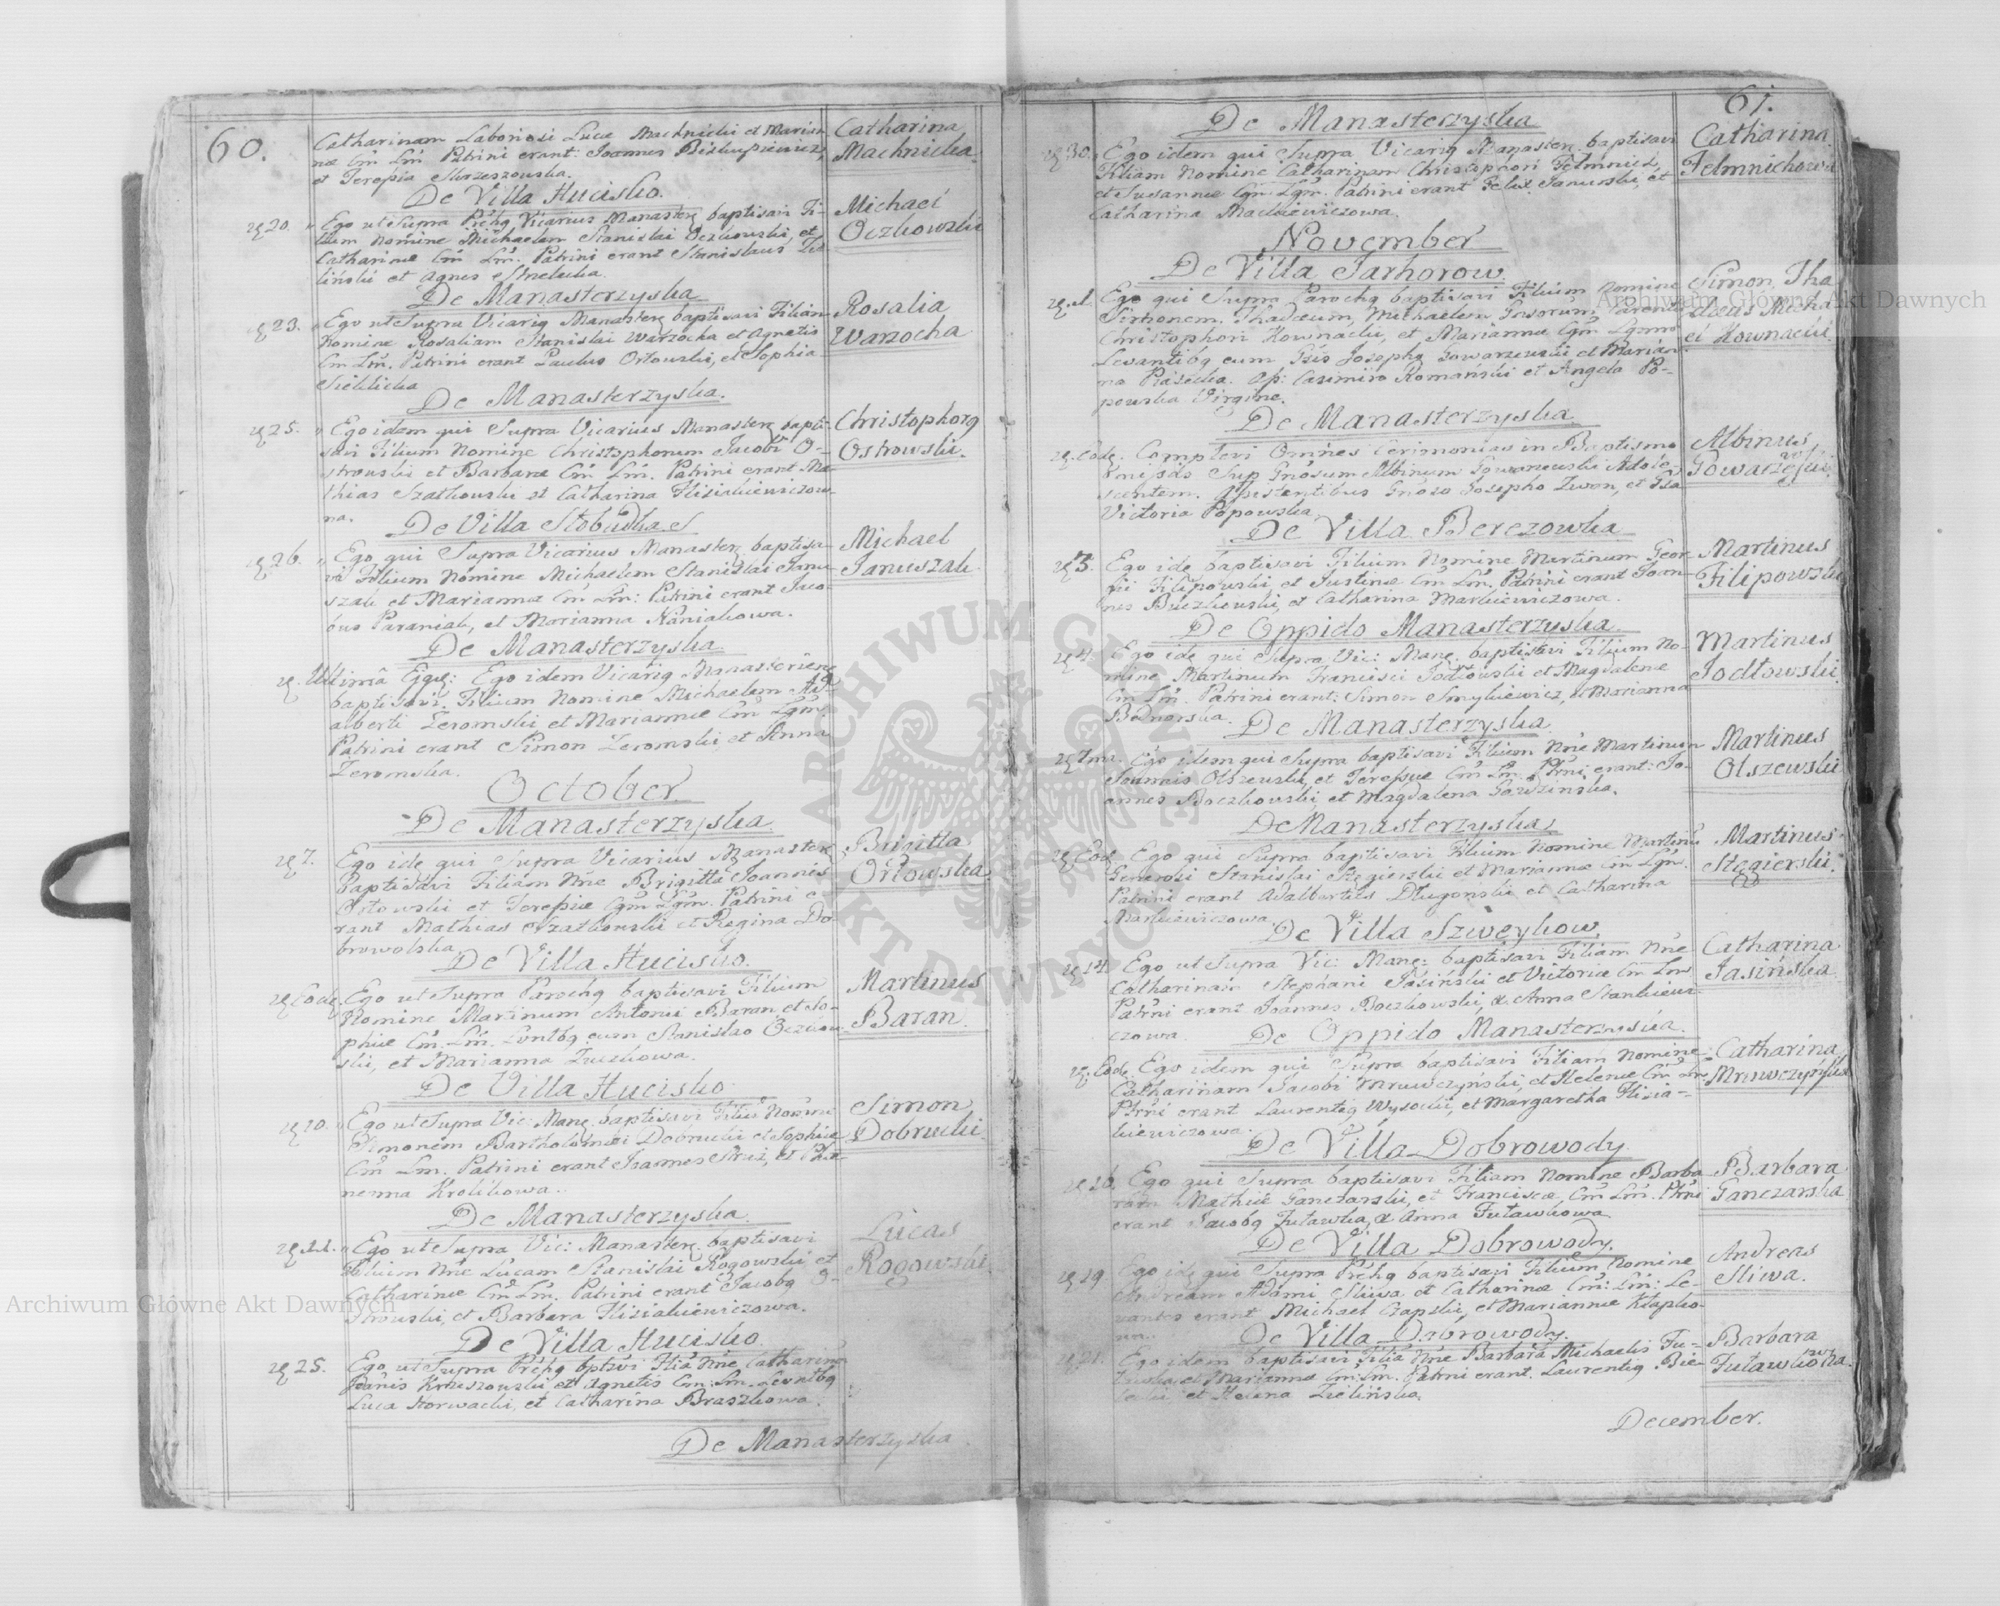 60.
Catharinam Laboriosi Lucæ Machnicki et Marian-
næ Cm̃ Lm̃ Patrini erant: Joannes Biskupiewicz,
et Teressia Skrzeszowska.
Catharina
Machnicka.
De Villa Hucisko.
20. Ego ut Supra Vicarius Manaster baptisavi Fi-
lium Nomine Michaelem Stanislai Oczkowski et
Catharinæ Cm̃ Lm̃. Patrini erant Stanislaus
et Agnes
Michael
Oczkowski
De Manasterzyska
23. Ego ut Supra Vicariq Manaster baptisavi Filiam
Nomine Rosaliam Stanislai Warzocha et Agnetis
Cm̃ Lm̃. Patrini erant Paulus Orłowski, et Sophia
Rosalia
Warzocha
De Manasterzyska.
25. Ego idem qui Supra Vicarius Manaster bapti-
savi Filium Nomine Christophorum Jacobi O-
strowski et Barbaræ Cm̃ Lm̃. Patrini erant Ma-
thias Szatkowski et Catharina Flisiakiewiczow-
na.
Christophorq
Ostrowski.
De Villa Stobudka
26. Ego qui Supra Vicarius Manaster baptisa-
vi Filium Nomine Michaelem Stanislai Janu-
szak et Mariannæ Cm̃ Lm̃: Patrini erant Jaco-
bus Paraniak, et Marianna Naniakowa.
Michael
Januszak
De Manasterzyska
Ultimâ Ejqe: Ego idem Vicariq Manasteriens
baptisavi Filium Nomine Michaelem Ad-
alberti Zeromski et Mariannæ Cm̃ Lgm̃
Patrini erant Simon Zeromski et Anna
Zeromska.
October
De Manasterzyska.
7. Ego idẽ qui Supra Vicarius Manaster
baptisavi Filiam Nñe Brigittã Joannis
Orłowski et Teressiæ Cgm̃ Lgm̃. Patrini e-
rant Mathias Szatkowski et Regina Do-
browolska
Brigitta
Orłowska
De Villa Hucisko.
Eode Ego ut Supra Parochq baptisavi Filium
Nomine Martinum Antonii Baran et So-
phiæ Cm̃. Lm̃. Lvntbq cum Stanislao Oczkow-
ski, et Marianna Zuczkowa.
Martinus
Baran.
De Villa Hucisko.
10. Ego ut Supra Vic: Manq baptisavi Filiũ Nomine
Simonem Bartholomæi Dobrucki et Sophiæ
Cm̃ Lm̃. Patrini erant Joannes et Ma-
rianna Krolikowa.
Simon
Dobrucki.
De Manasterzyska.
11. Ego ut Supra Vic: Manaster baptisavi
Filium Nñe Lucam Stanislai Rogowski et
Catharinæ Cm̃ Lm̃. Patrini erant Jacobq O-
strowski, et Barbara Flisiakiewiczowa.
Lucas
Rogowski
De Villa Hucisko.
25. Ego ut Supra Pr̃chq bptsvi Fliã Nñe Catharinã
Kruszowski et Agnetis Cm̃: Lm̃. Levntbq
Luca Horwacki, et Catharina Braszkowa.
De Manasterzyska.
61.
De Manasterzyska
30. Ego idem qui Supra Vicariq Manaster baptisavi
Filiam Nomine Catharinam Christophori Felmnich,
et Susannæ Cgm̃ Lgm̃. Patrini erant Felix Janurski, et
Catharina Mackiewiczowa.
Catharina
Felmnichowa
November
De Villa Jarhorow.
1. Ego qui Supra Parochq baptisavi Filium Nomine
Simonem, Thadæum, Michaelem Gnsorum Parentũ
Christophori Kownacki, et Mariannæ Cgm̃ Lgmm̃
Levantibq cum Gso Josephq Gowarzewski et Marian-
na Piasecka. Casimiro Romański et Angela Po-
powska Virgine.
Simon, Tha
dæus Micha
el Kownacki.
De Manasterzyska.
Eode. Complevi Omnes Cerimonias in Baptismo
Omissas Sup Gnosum Albinum Gowarzewski Adole-
scentem. Assistentibus Gnoso Josepho Zwon, et Gsa
Victoria Popowska.
Albinus
Gowarzewski
De Villa Berezowka
3. Ego idẽ baptisavi Filium Nomine Martinum Geor-
gii Filipowski, et Justinæ Cm̃ Lm̃. Patrini erant Joan-
nes Buczkowski, et Catharina Markiewiczowa.
Martinus
Filipowski
De Oppido Manasterzyska.
4. Ego idẽ qui Supra Vic: Manq. baptisavi Filium No-
mine Martinum Francisci Jodłowski et Magdalenæ
Cm̃ Lm̃. Patrini erant: Simon Smykiewicz, et Marianna
Bednarska.
Martinus
Jodłowski.
De Manasterzyska.
Ego idem qui Supra baptisavi Filium Nñe Martinum
Joannis Olszewski, et Teressiæ Cm̃ Lm̃. Ptrni erant: Jo-
annes Boczkowski, et Magdalena
Martinus
Olszewski
De Manasterzyska
Eod. Ego qui Supra baptisavi Filium Nomine Martinũ
Generosi Stanislai Stęgierski et Mariannæ Cm̃ Lgm̃.
Patrini erant Adalbertus Długoński et Catharina
Markiewiczowa.
Martinus
Stęgierski.
De Villa Szweykow.
14. Ego ut Supra Vic: Manq: baptisavi Filiam Nñe
Catharinam Stephani Jasiński et Victoriæ Cm̃ Lm̃
Patrni erant Joannes Boczkowski, & Anna Stankiewi-
czowa.
Catharina
Jasińska
De Oppido Manasterzyska.
Eode Ego idem qui Supra baptisavi Filiam Nomine
Catharinam Jacobi Mruwczyński, et Helenæ Cm̃ Lm̃
Ptrni erant Laurentiq Wysocki, et Margaretha Flisia-
kiewiczowa.
Catharina
Mruwczyńska
De Villa Dobrowody
Ego qui Supra baptisavi Filiam Nomine Barba-
ram Mathiæ Ganczarski, et Franciscæ, Cm̃ Lm̃. Ptrni
erant Jacobq Futawka, & Anna Futawkowa.
Barbara
Ganczarska
De Villa Dobrowody.
19 Ego idẽ qui Supra Prchq baptisavi Filium Nomine
Andream Adami Sliwa et Catharinæ Cm̃: Lm̃: Le-
vantes erant Michael Czapski, et Mariannæ Kłapko-
wa.
Andreas
Sliwa.
De Villa Dobrowody.
21. Ego idem baptisavi Filiã Nñe Barbarã Michaelis Fu-
tawka et Mariannæ Cm̃: Lm̃. Patrni erant. Laurentiq Bie-
lecki, et Helena Zielińska.
Barbara
Futawkowna.
December.
Archiwum Główne Akt Dawnych
Archiwum Główne Akt Dawnych
ARCHIWUM GŁÓWNE AKT DAWNYCH